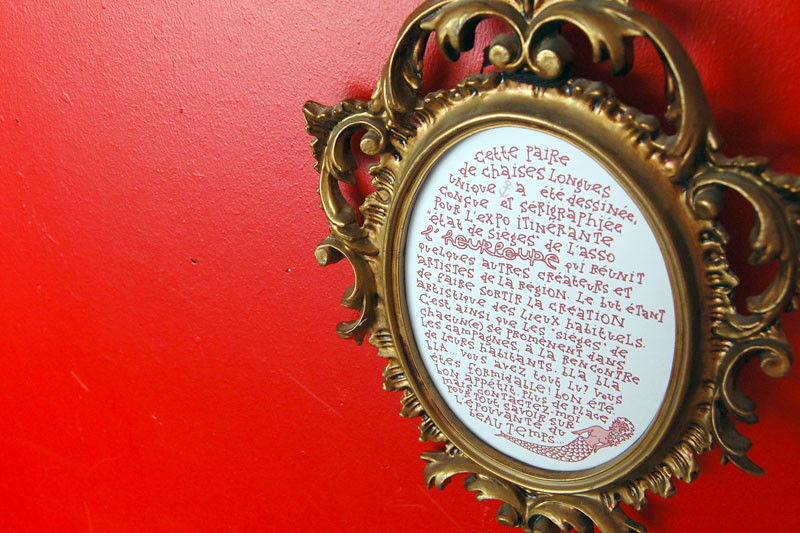 cette paire
de chaises longues
unique a été dessinée,
conçue et sérigraphiée
pour l'expo itinérante
"état de sièges" de l'asso
l'hourloupe qui réunit
quelques autres créateurs et
artistes de la région. Le but étant
de faire sortir la création
artistique des lieux habituels.
C'est ainsi que les "sièges" de
chacun(e) se promènent dans
les campagnes, à la rencontre
de leurs habitants. bla bla
bla... vous avez tout lu? vous
êtes formidable! bon été,
bon appétit. plus de place
mais contactez-moi
pour tout savoir sur
l'épouvante du
beau temps...